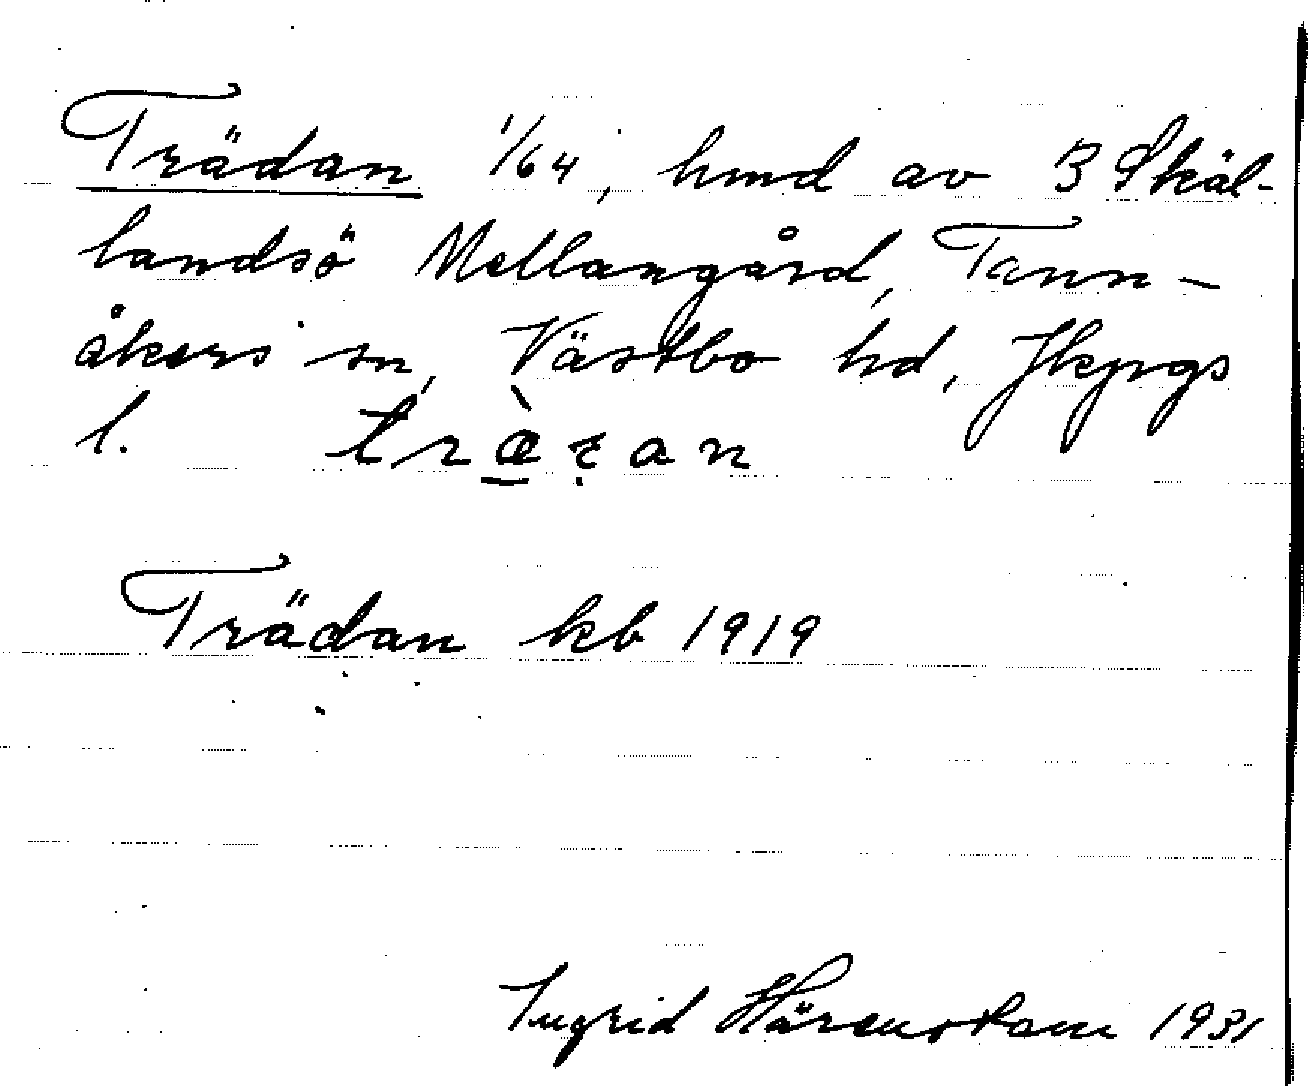 Trädan 1/64, hmd av 3 Skäl-
landsö Mellangård, Tann-
åkers sn, Västbo hd, Jkpgs
l. træ̠̀ɀ̣an
Trädan kb 1919
Ingrid Härenstam 1931